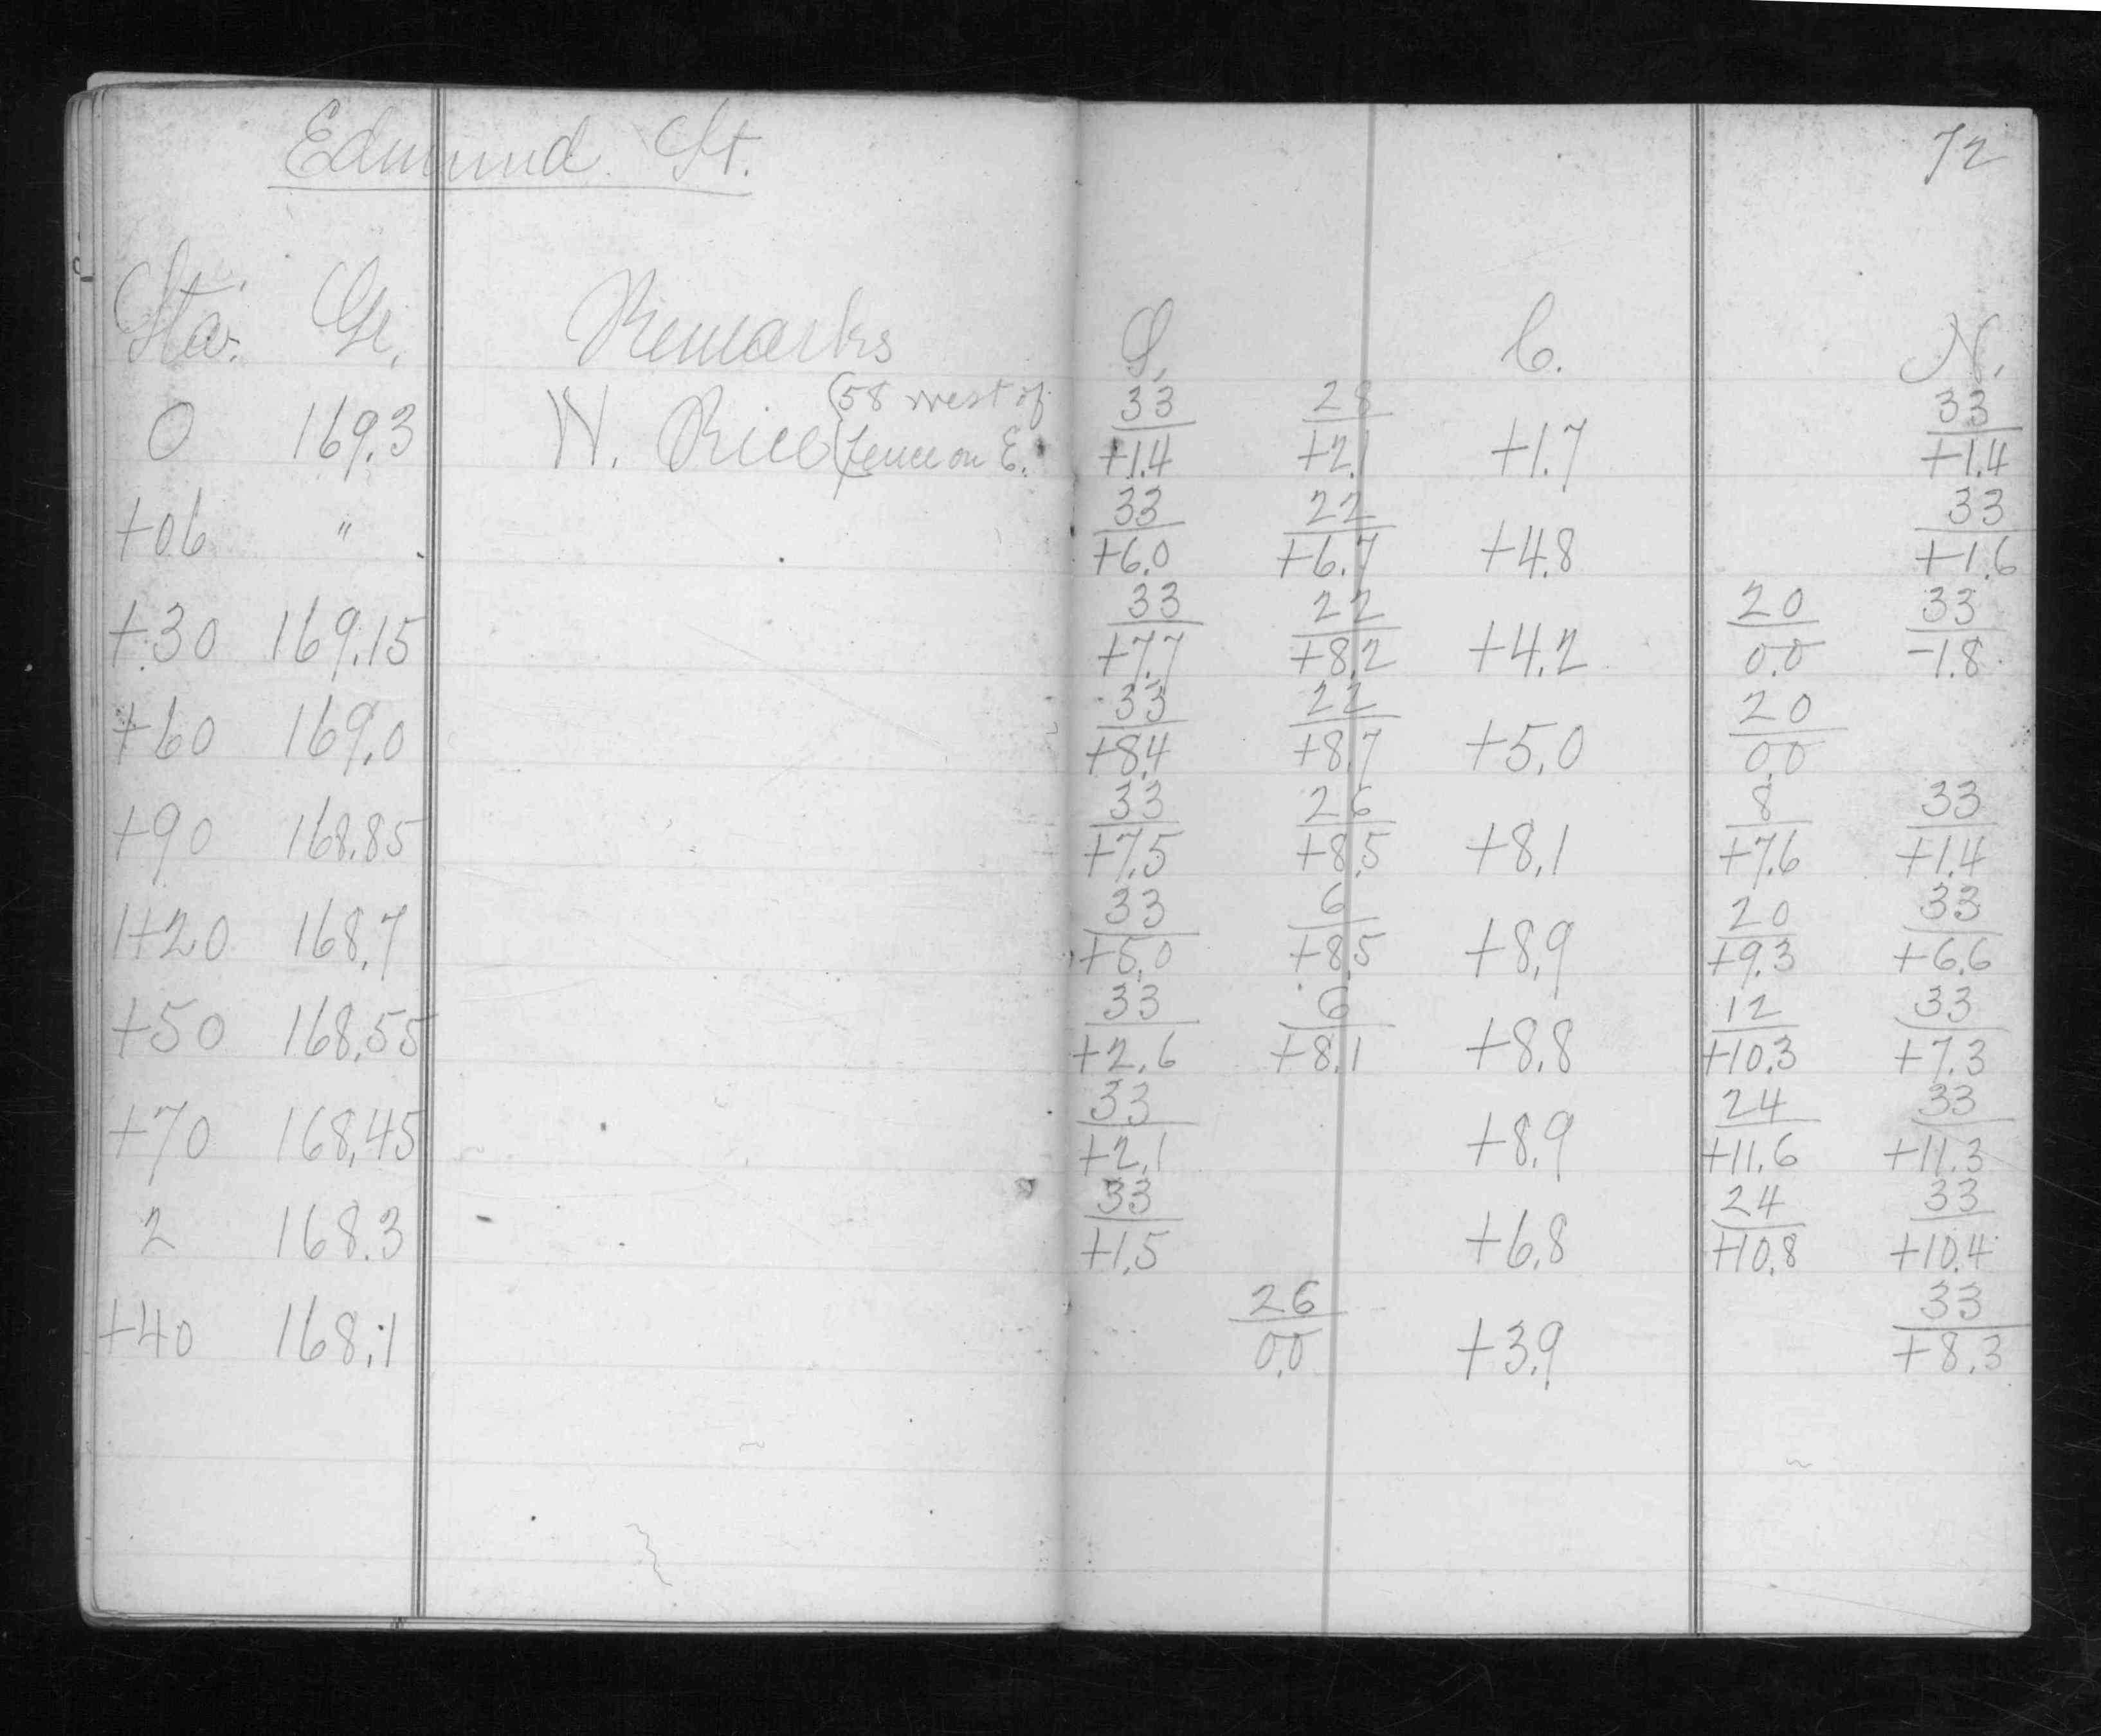 Edmund St.
72
Sta. Gr. Remarks S. C. N.
58 west of 33 28 33
0 169.3 W. Rice fence on E. +1.4 +2.1 +1.7 +1.4
33 22 33
+06 " +6.0 +6.7 +4.8 +1.6
33 22 20 33
+30 169.15 +7.7 +8.2 +4.2 0.0 -1.8
33 22 20
+60 169.0 +8.4 +8.7 +5.0 0.0
33 26 8 33
+90 168.85 +7.5 +8.5 +8.1 +7.6 +1.4
33 6 20 33
1+20 168.7 +5.0 +8.5 +8.9 +9.3 +6.6
33 6 12 33
+50 168.55 +2.6 +8.1 +8.8 +10.3 +7.3
33 24 33
+70 168.45 +2.1 +8.9 +11.6 +11.3
33 24 33
2 168.3 +1.5 +6.8 +10.8 +10.4
26 33
+40 168.1 0.0 +3.9 +8.3